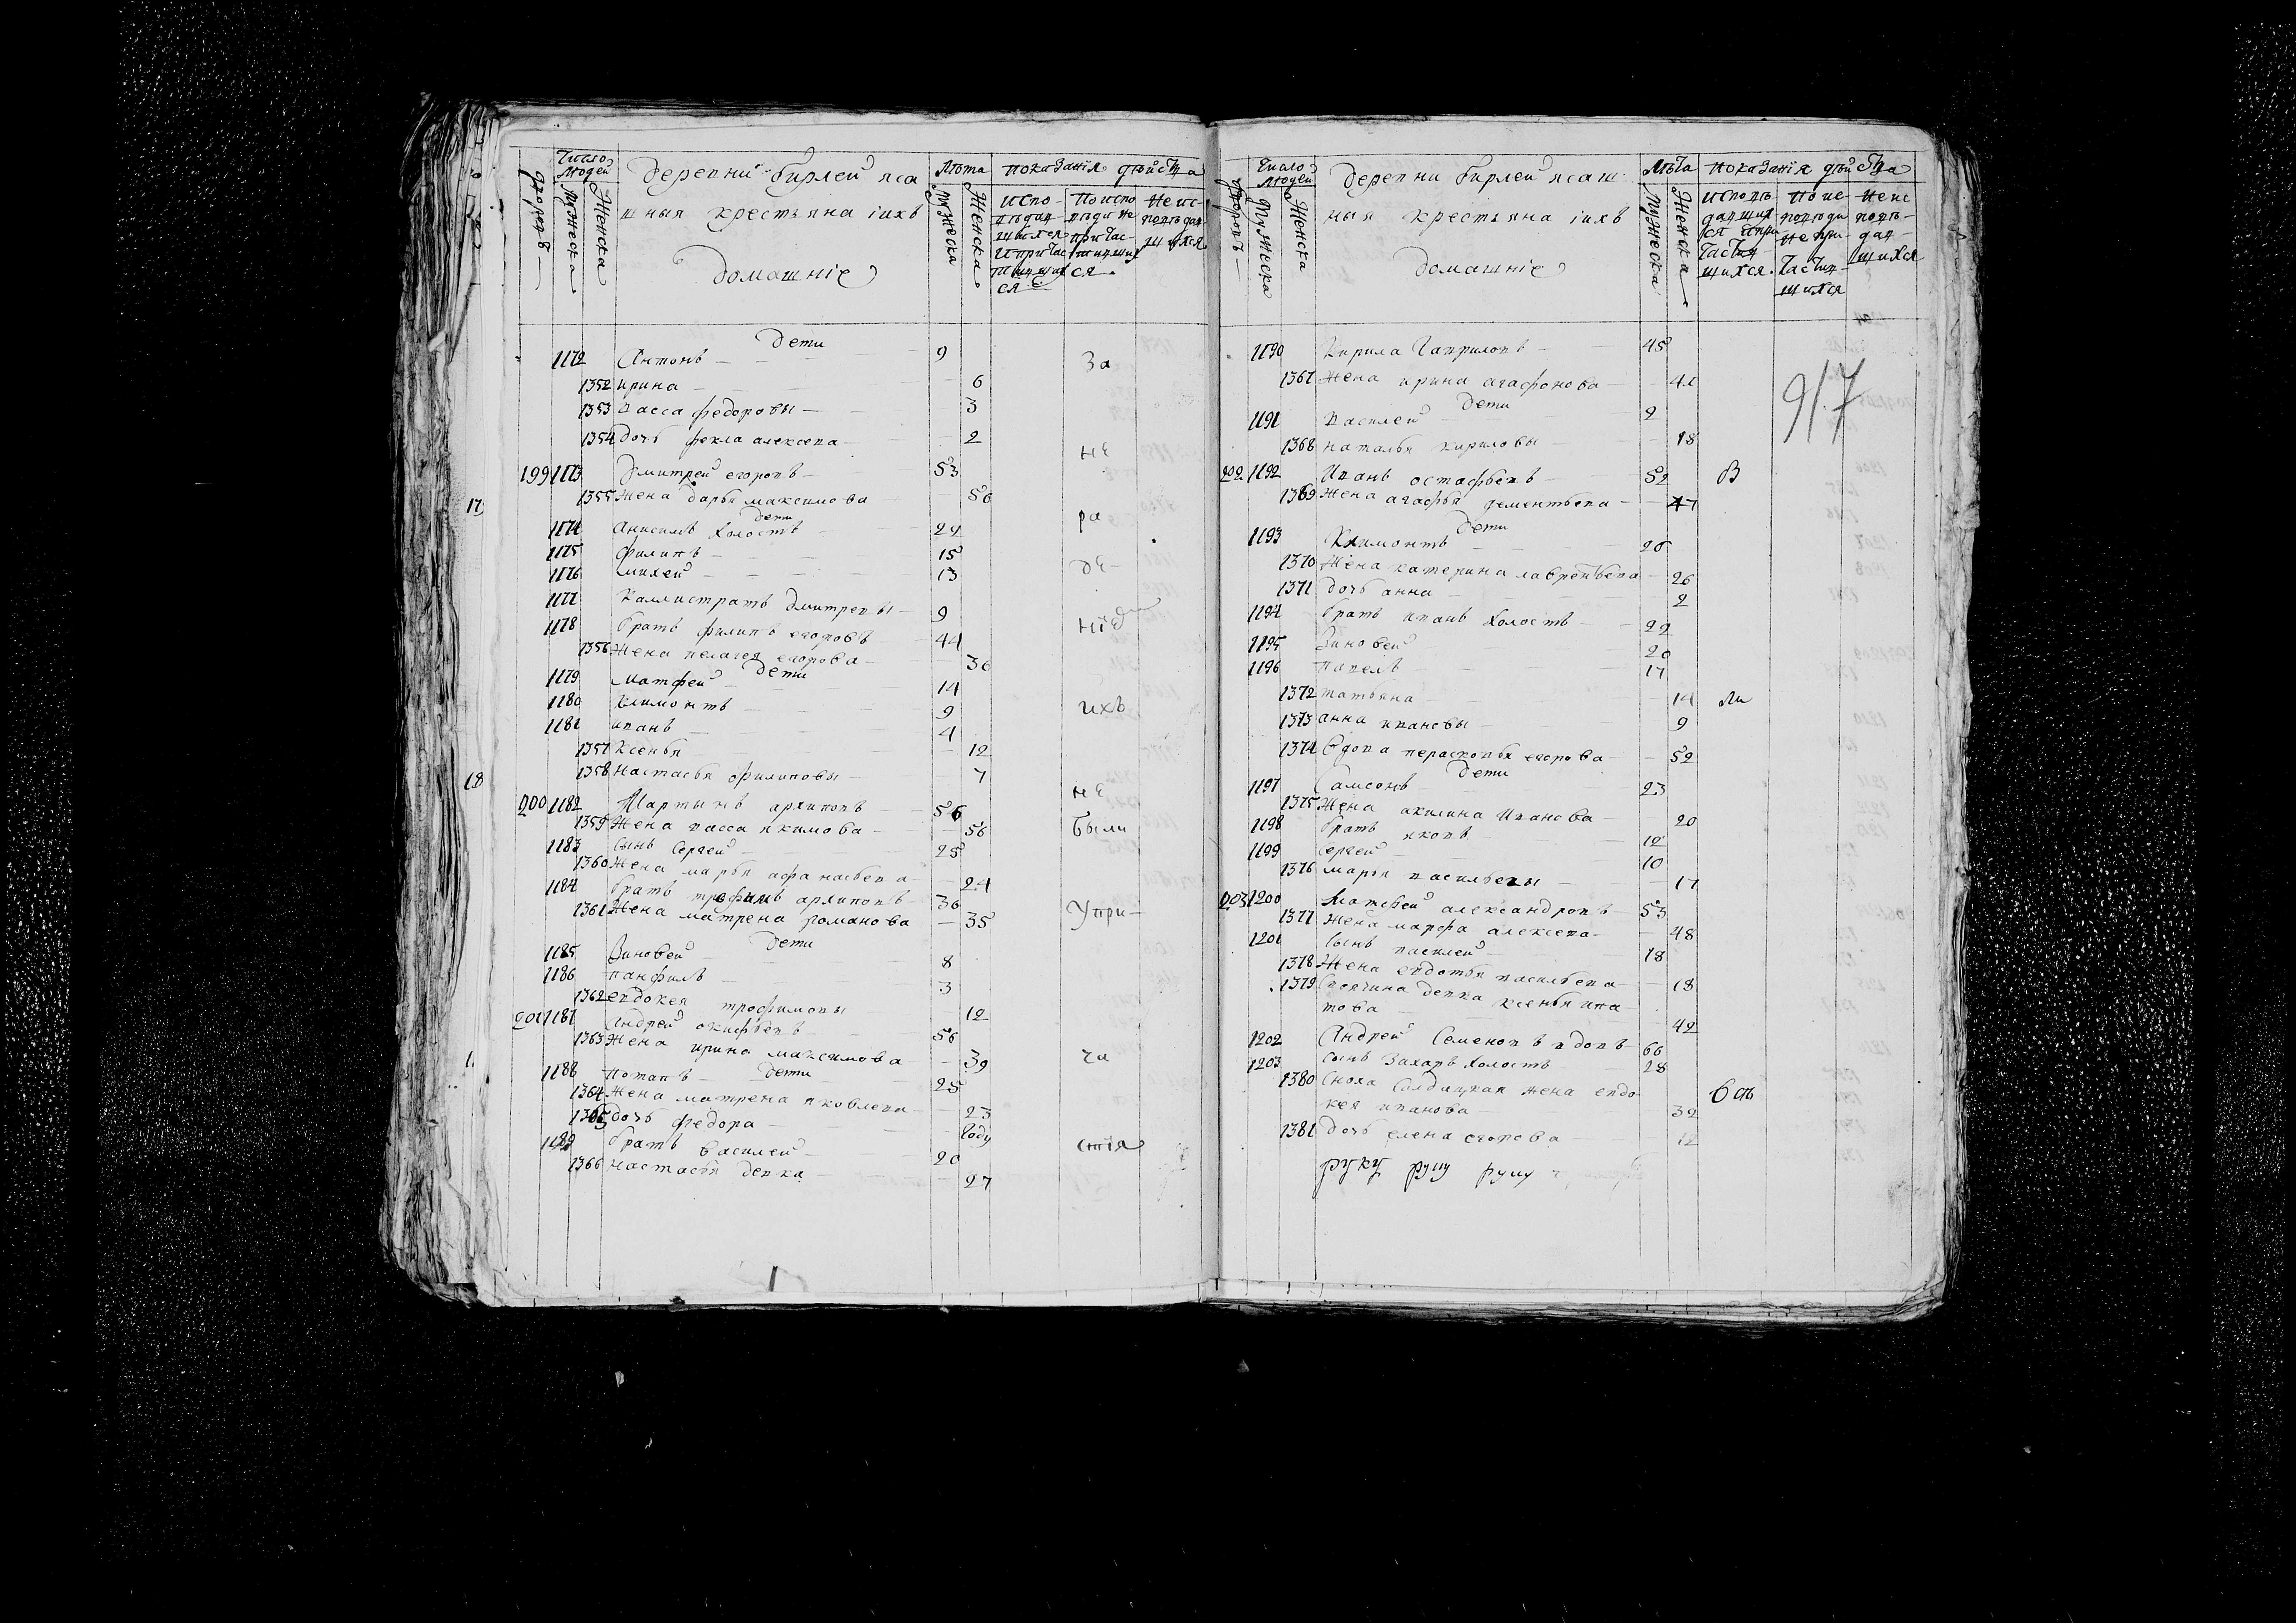 Число людей
дворовъ
мужеска
женска
деревни Бирлей яса
шныя крестьяна іихъ
домашніе
лѣта
мужеска
женска
показанія дѣйства
испо-
вѣдав-
шихся
ипричас
тивших
ся
по испо
вѣди не
причас-
тивших
ся
неис-
повѣдав
шихся
дети
1172 Антонъ 9
1352 ирина 6
1353 васса федоровы 3
1354 дочь фекла алексева 2
199 1173 Дмитрей егоровъ 53
1355 жена дарья максимова 50
дети
1174 Анисимъ холостъ 24
1175 филипъ 15
1176 михей 13
1177 Каллистратъ дмитревы 9
1178 братъ филипъ егоровъ 44
1356 жена пелагея егорова 36
дети
1179 матфей 14
1180 климонтъ 9
1181 иванъ 4
1357 ксенья 12
1358 настасья филиповы 7
200 1182 Мартынъ архиповъ 56
1359 жена васса якимова 56
1183 сынъ Сергей 25
1360 жена марья афанасьева 24
1184 братъ трофимъ архиповъ 36
1361 жена матрена романова 35
дети
1185 Зиновей 8
1186 панфилъ 3
1362 евдокея трофимовы 12
201 1187 Андрей окифьевъ 56
1363 жена ирина максимова 39
дети
1188 Потапъ 25
1364 жена матрена яковлева 23
1365 дочь федора году
1189 братъ василей 20
1366 настасья девка 27
за
не
ра
де-
ніе
ихъ
не
были
у при-
ча
стія
Число людей
дворовъ
мужеска
женска
деревни Бирлей ясаш
ныя крестьяна іихъ
домашніе
лѣта
мужеска
женска
показанія дѣйства
исповѣ
давших
ся ипри
частив
шихся
по ис
поведи
не при-
частив-
шихся
неис
повѣ-
дав-
шихся
917
1190 Кирила Гавриловъ 45
1367 жена ирина агафонова
дети
1191 василей 2
1368 наталья кириловы 18
202 1192 Иванъ остафьевъ 52
1369 жена агафья дементьева 47
дети
1193 Климонтъ
1370 жена катерина лаврентьева 26
1371 дочь анна 2
1194 братъ иванъ холостъ 22
1195 Зиновей 20
1196 павелъ 17
1372 татьяна 14
1373 анна ивановы 9
1374 вдова перасковья егорова 52
дети
1197 Самсонъ 23
1375 жена акилина Иванова 20
1198 братъ яковъ 12
1199 сергей 10
1376 марья васильевы 17
203 1200 Матвей александровъ 53
1377 жена марфа алексева 48
1201 сынъ василей 18
1378 жена евдотья васильева 18
1379 своячина девка ксенья ипа
това 42
1202 Андрей Семеновъ вдовъ 66
1203 сынъ Захаръ холостъ 28
1380 сноха Солдацкая жена евдо
кея иванова 32
1381 дочь елена егорова 12
В
ли
руку